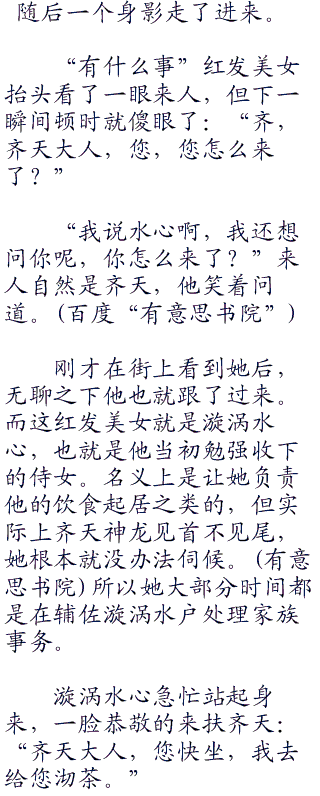 随后一个身影走了进来。
“有什么事”红发美女
抬头看了一眼来人，但下一
瞬间顿时就傻眼了：“齐，
齐天大人，您，您怎么来
了？”
“我说水心啊，我还想
问你呢，你怎么来了？”来
人自然是齐天，他笑着问
道。(百度“有意思书院”)
刚才在街上看到她后，
无聊之下他也就跟了过来。
而这红发美女就是漩涡水
心，也就是他当初勉强收下
的侍女。名义上是让她负责
他的饮食起居之类的，但实
际上齐天神龙见首不见尾，
她根本就没办法伺候。(有意
思书院)所以她大部分时间都
是在辅佐漩涡水户处理家族
事务。
漩涡水心急忙站起身
来，一脸恭敬的来扶齐天：
“齐天大人，您快坐，我去
给您沏茶。”